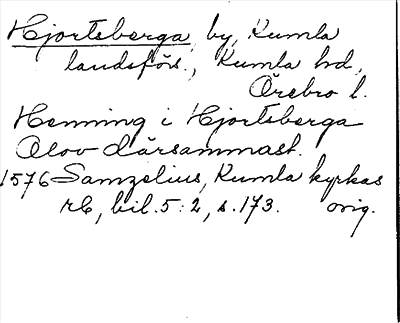 Hjortsberga, by, Kumla
landsförs., Kumla hd,
Örebro l.
Henning i Hjortsberga
Olov Lársammast.
1576 Samzelius, Kumla kyrkas
rb, bil. 5:2, s. 173. orig.